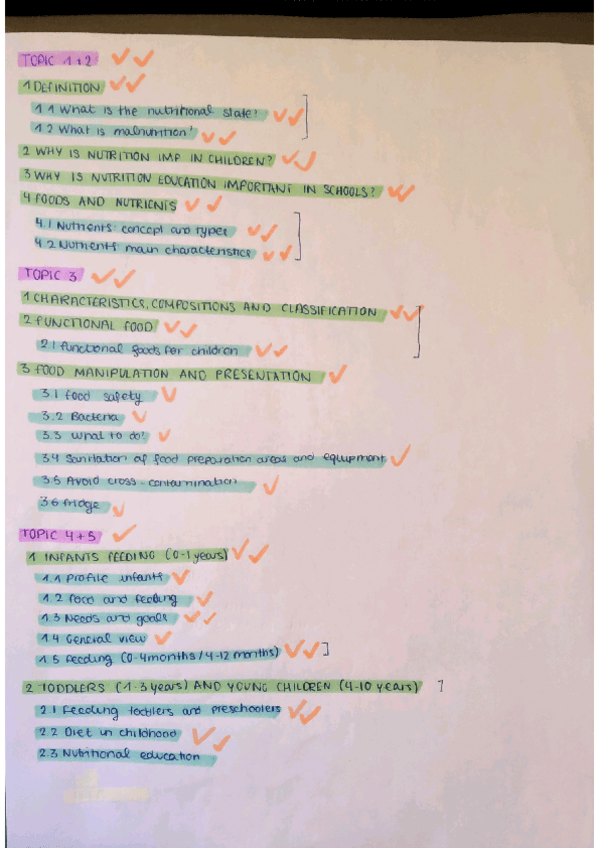 TOPIC 1+2
1 DEFINITION
1.1 What is the nutritional state?
1.2 What is malnutrition?
2 WHY IS NUTRITION IMP IN CHILDREN?
3 WHY IS NUTRITION EDUCATION IMPORTANT IN SCHOOLS?
4 FOODS AND NUTRIENTS
4.1 Nutrients: concept and types
4.2 Nutrients main characteristics
TOPIC 3
1 CHARACTERISTICS, COMPOSITIONS AND CLASSIFICATION
2 FUNCTIONAL FOOD
2.1 functional foods for children
3 FOOD MANIPULATION AND PRESENTATION
3.1 food safety
3.2 Bacteria
3.3 What to do?
3.4 Sanitation of food preparation areas and equipment
3.5 Avoid cross-contamination
3.6 fridge
TOPIC 4+5
1 INFANTS FEEDING (0-1 years)
1.1 Profile infants
1.2 Food and feeding
1.3 Needs and goals
1.4 General view
1.5 Feeding (0-4 months / 4-12 months)
2 TODDLERS (1-3 years) AND YOUNG CHILDREN (4-10 years)
2.1 Feeding toddlers and preschoolers
2.2 Diet in childhood
2.3 Nutritional education